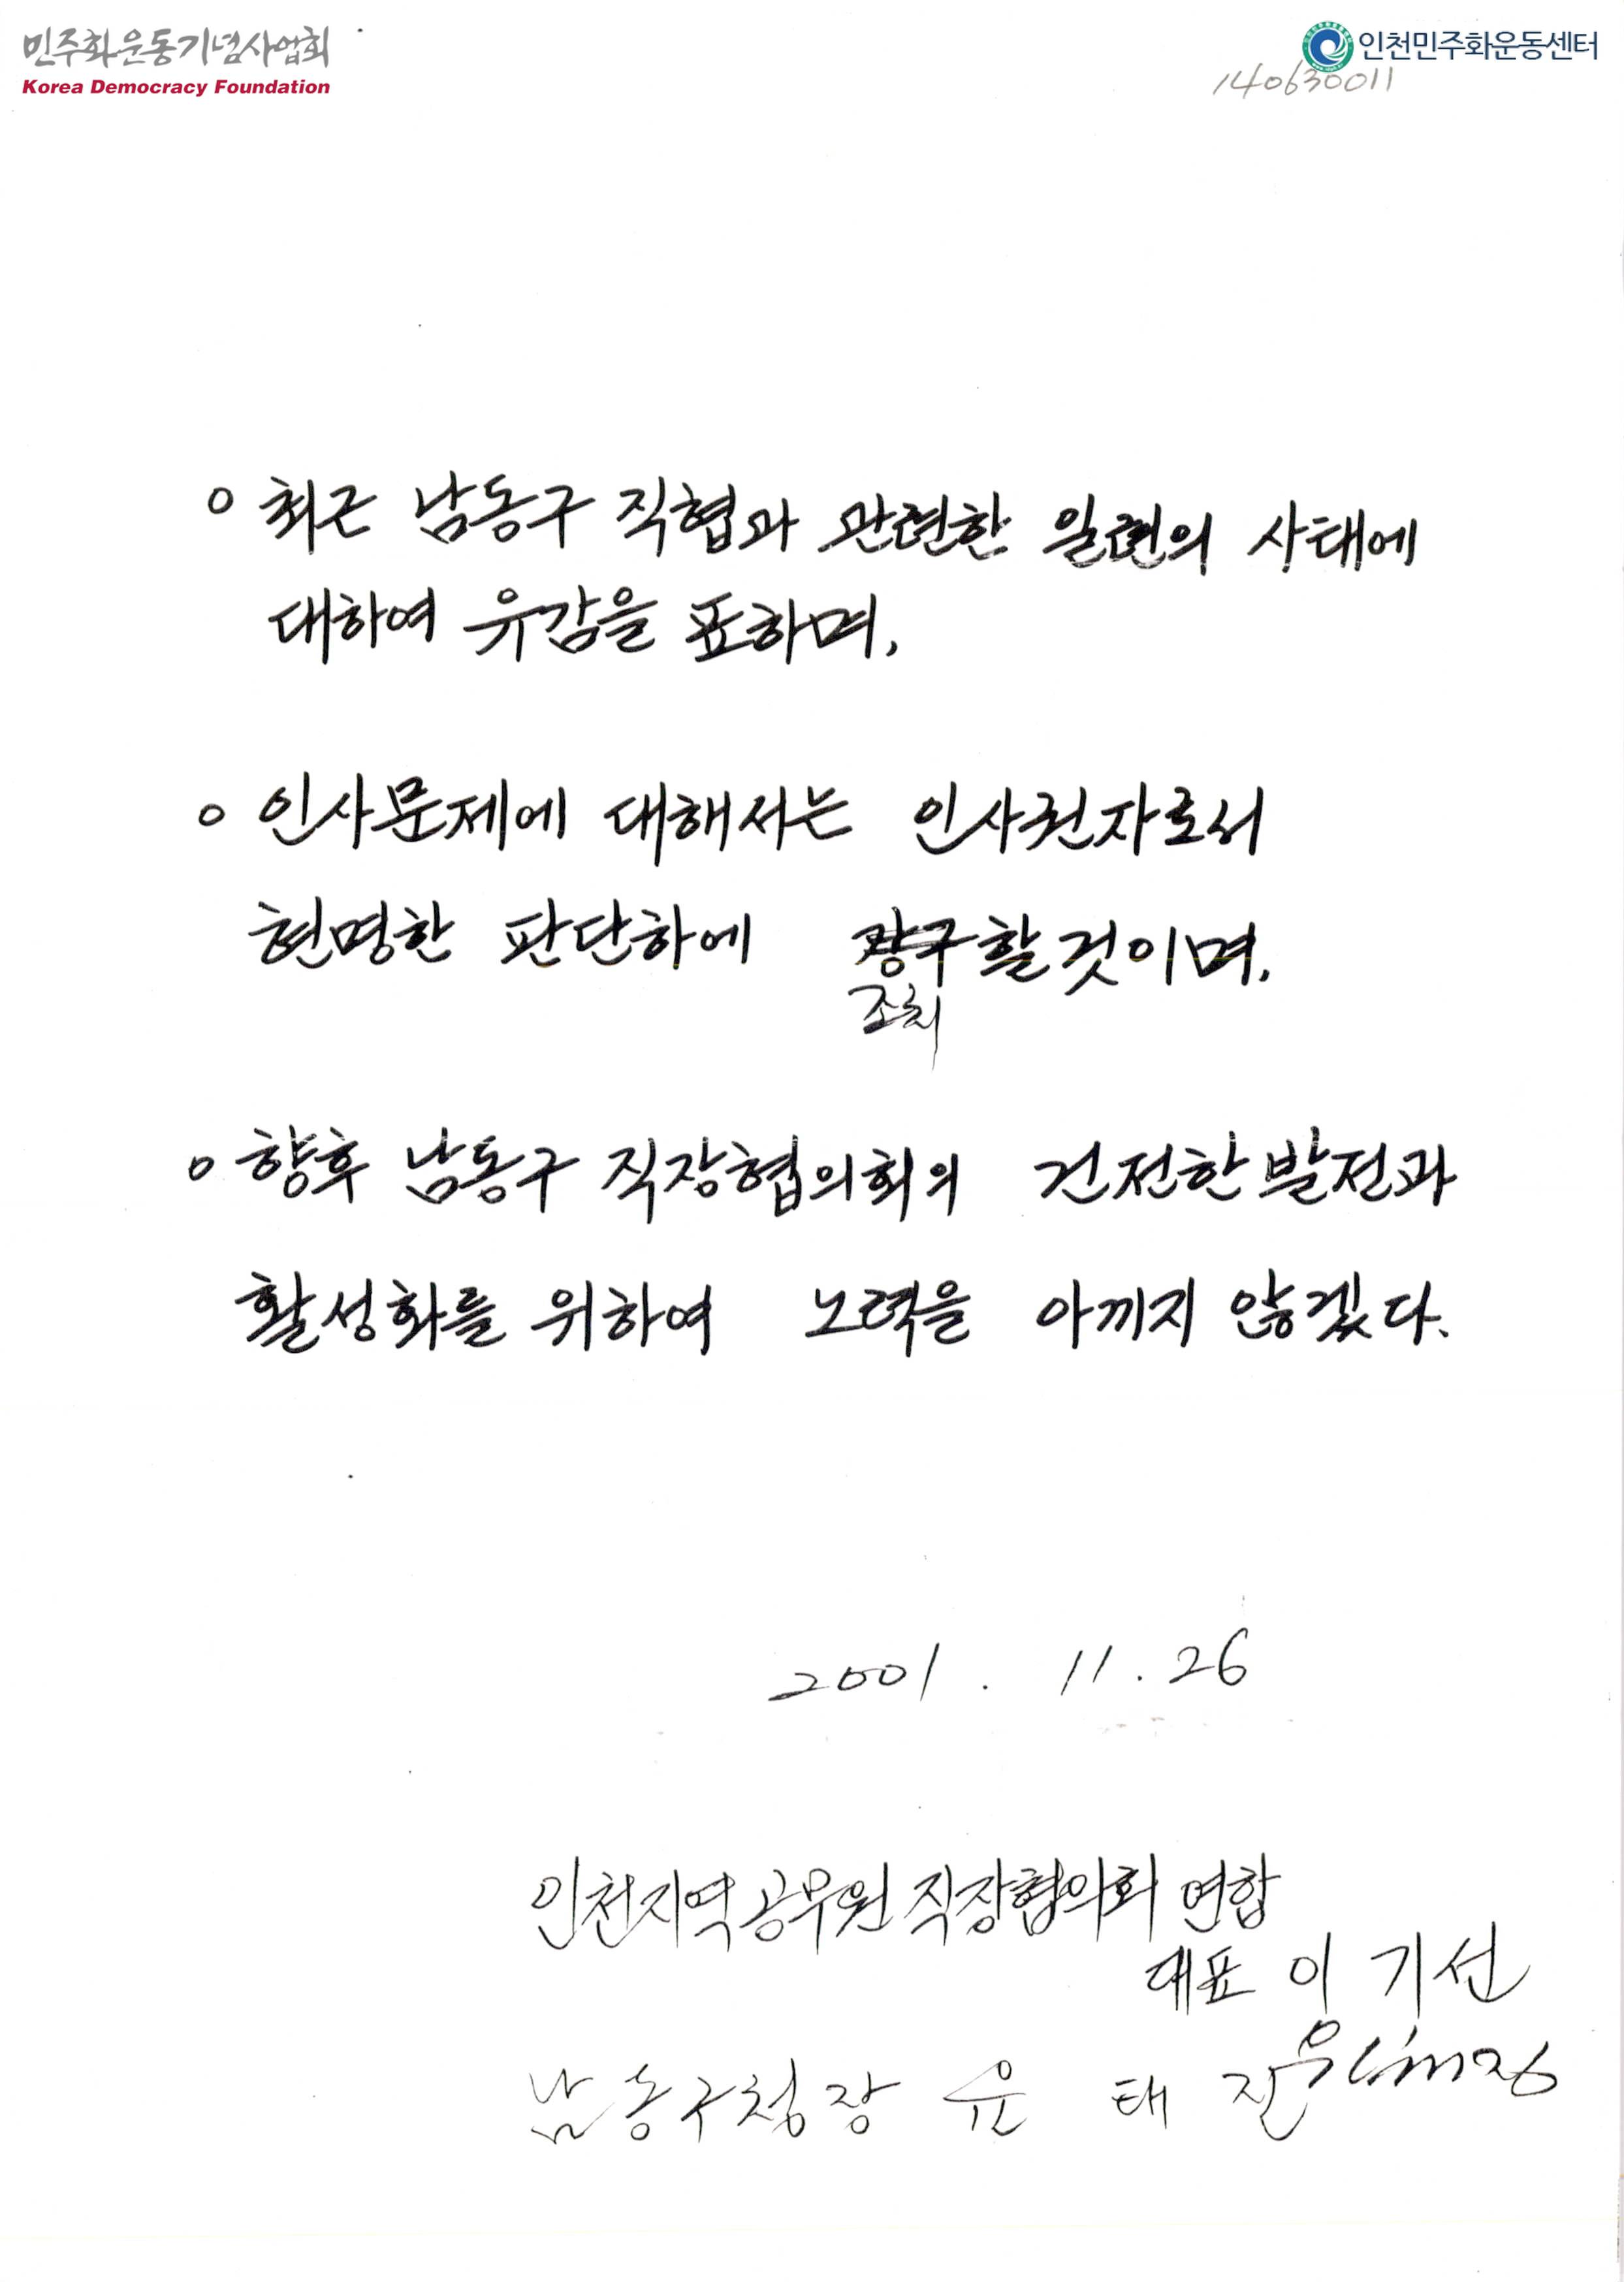 민주화운동기념사업회
Korea Democracy Foundation
인천민주화운동센터
140630011
o 최근 남동구 직협과 관련한 일련의 사태에
대하여 유감을 표하며,
o 인사문제에 대해서는 인사권자로서
현명한 판단하에 강구할것이며,
조치
o 향후 남동구 직장협의회의 건전한 발전과
활성화를 위하여 노력을 아끼지 않겠다.
2001. 11. 26
인천지역공무원직장협의회 연합
대표 이 기선
남동구청장 윤 태 진